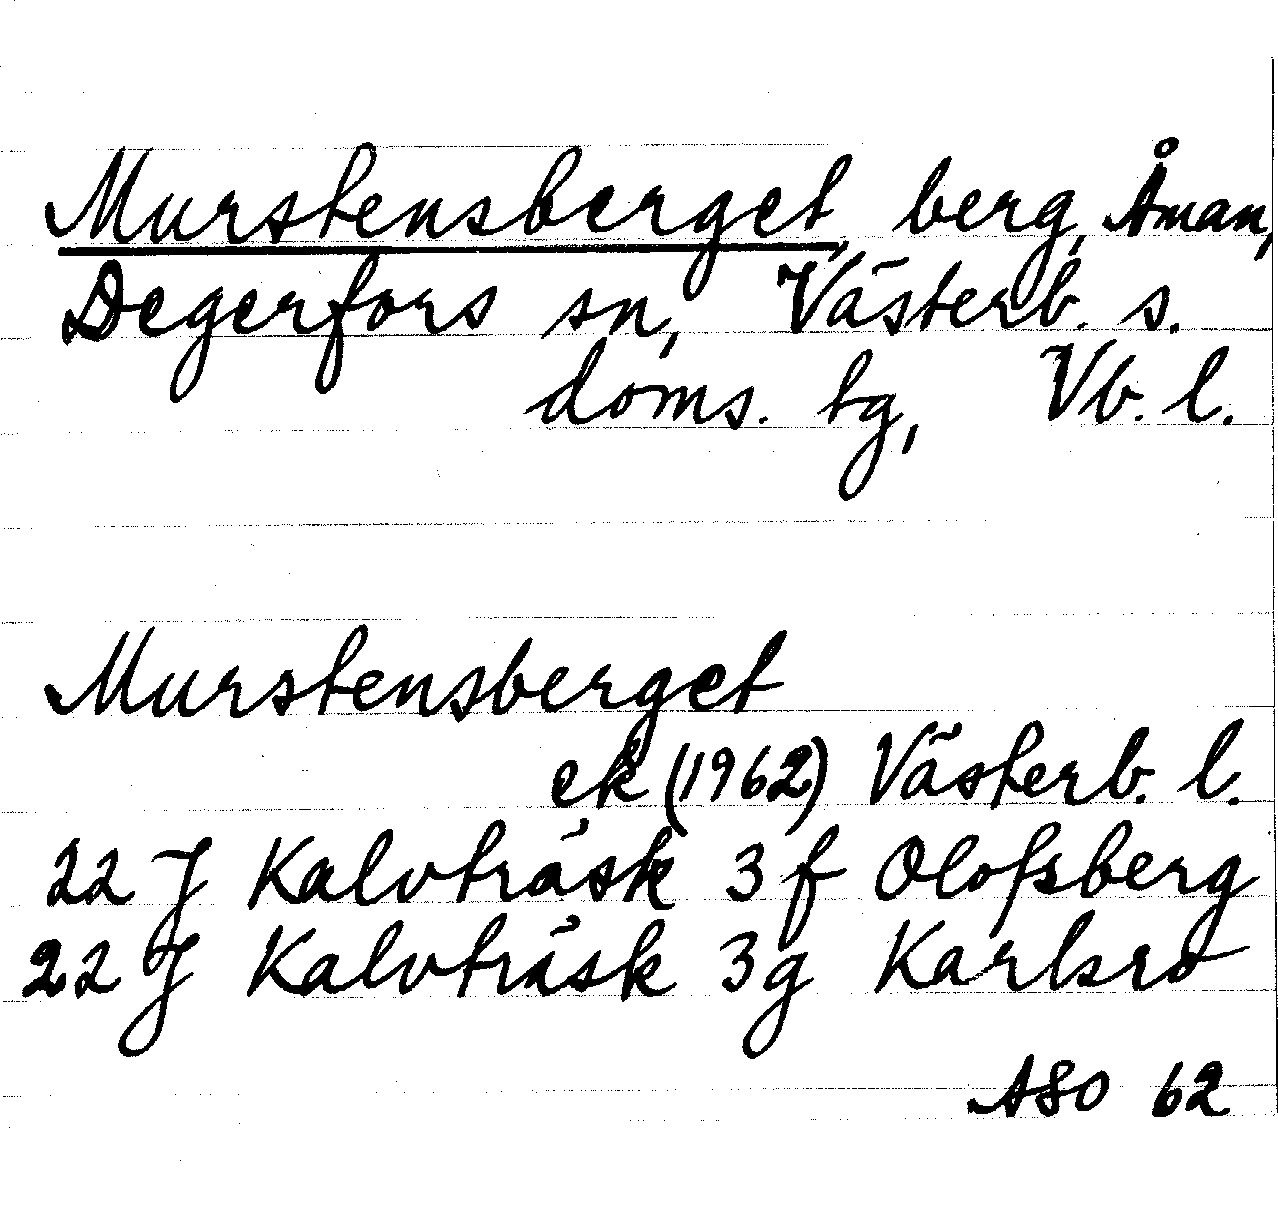 Murstensberget, berg, Åman,
Degerfors sn, Västerb. s.
doms. tg, Vb. l.
Murstensberget
ek (1962) Västerb. l.
22 J Kalvträsk 3 f Olofsberg
22 J Kalvträsk 3g Karlsro
ASO 62